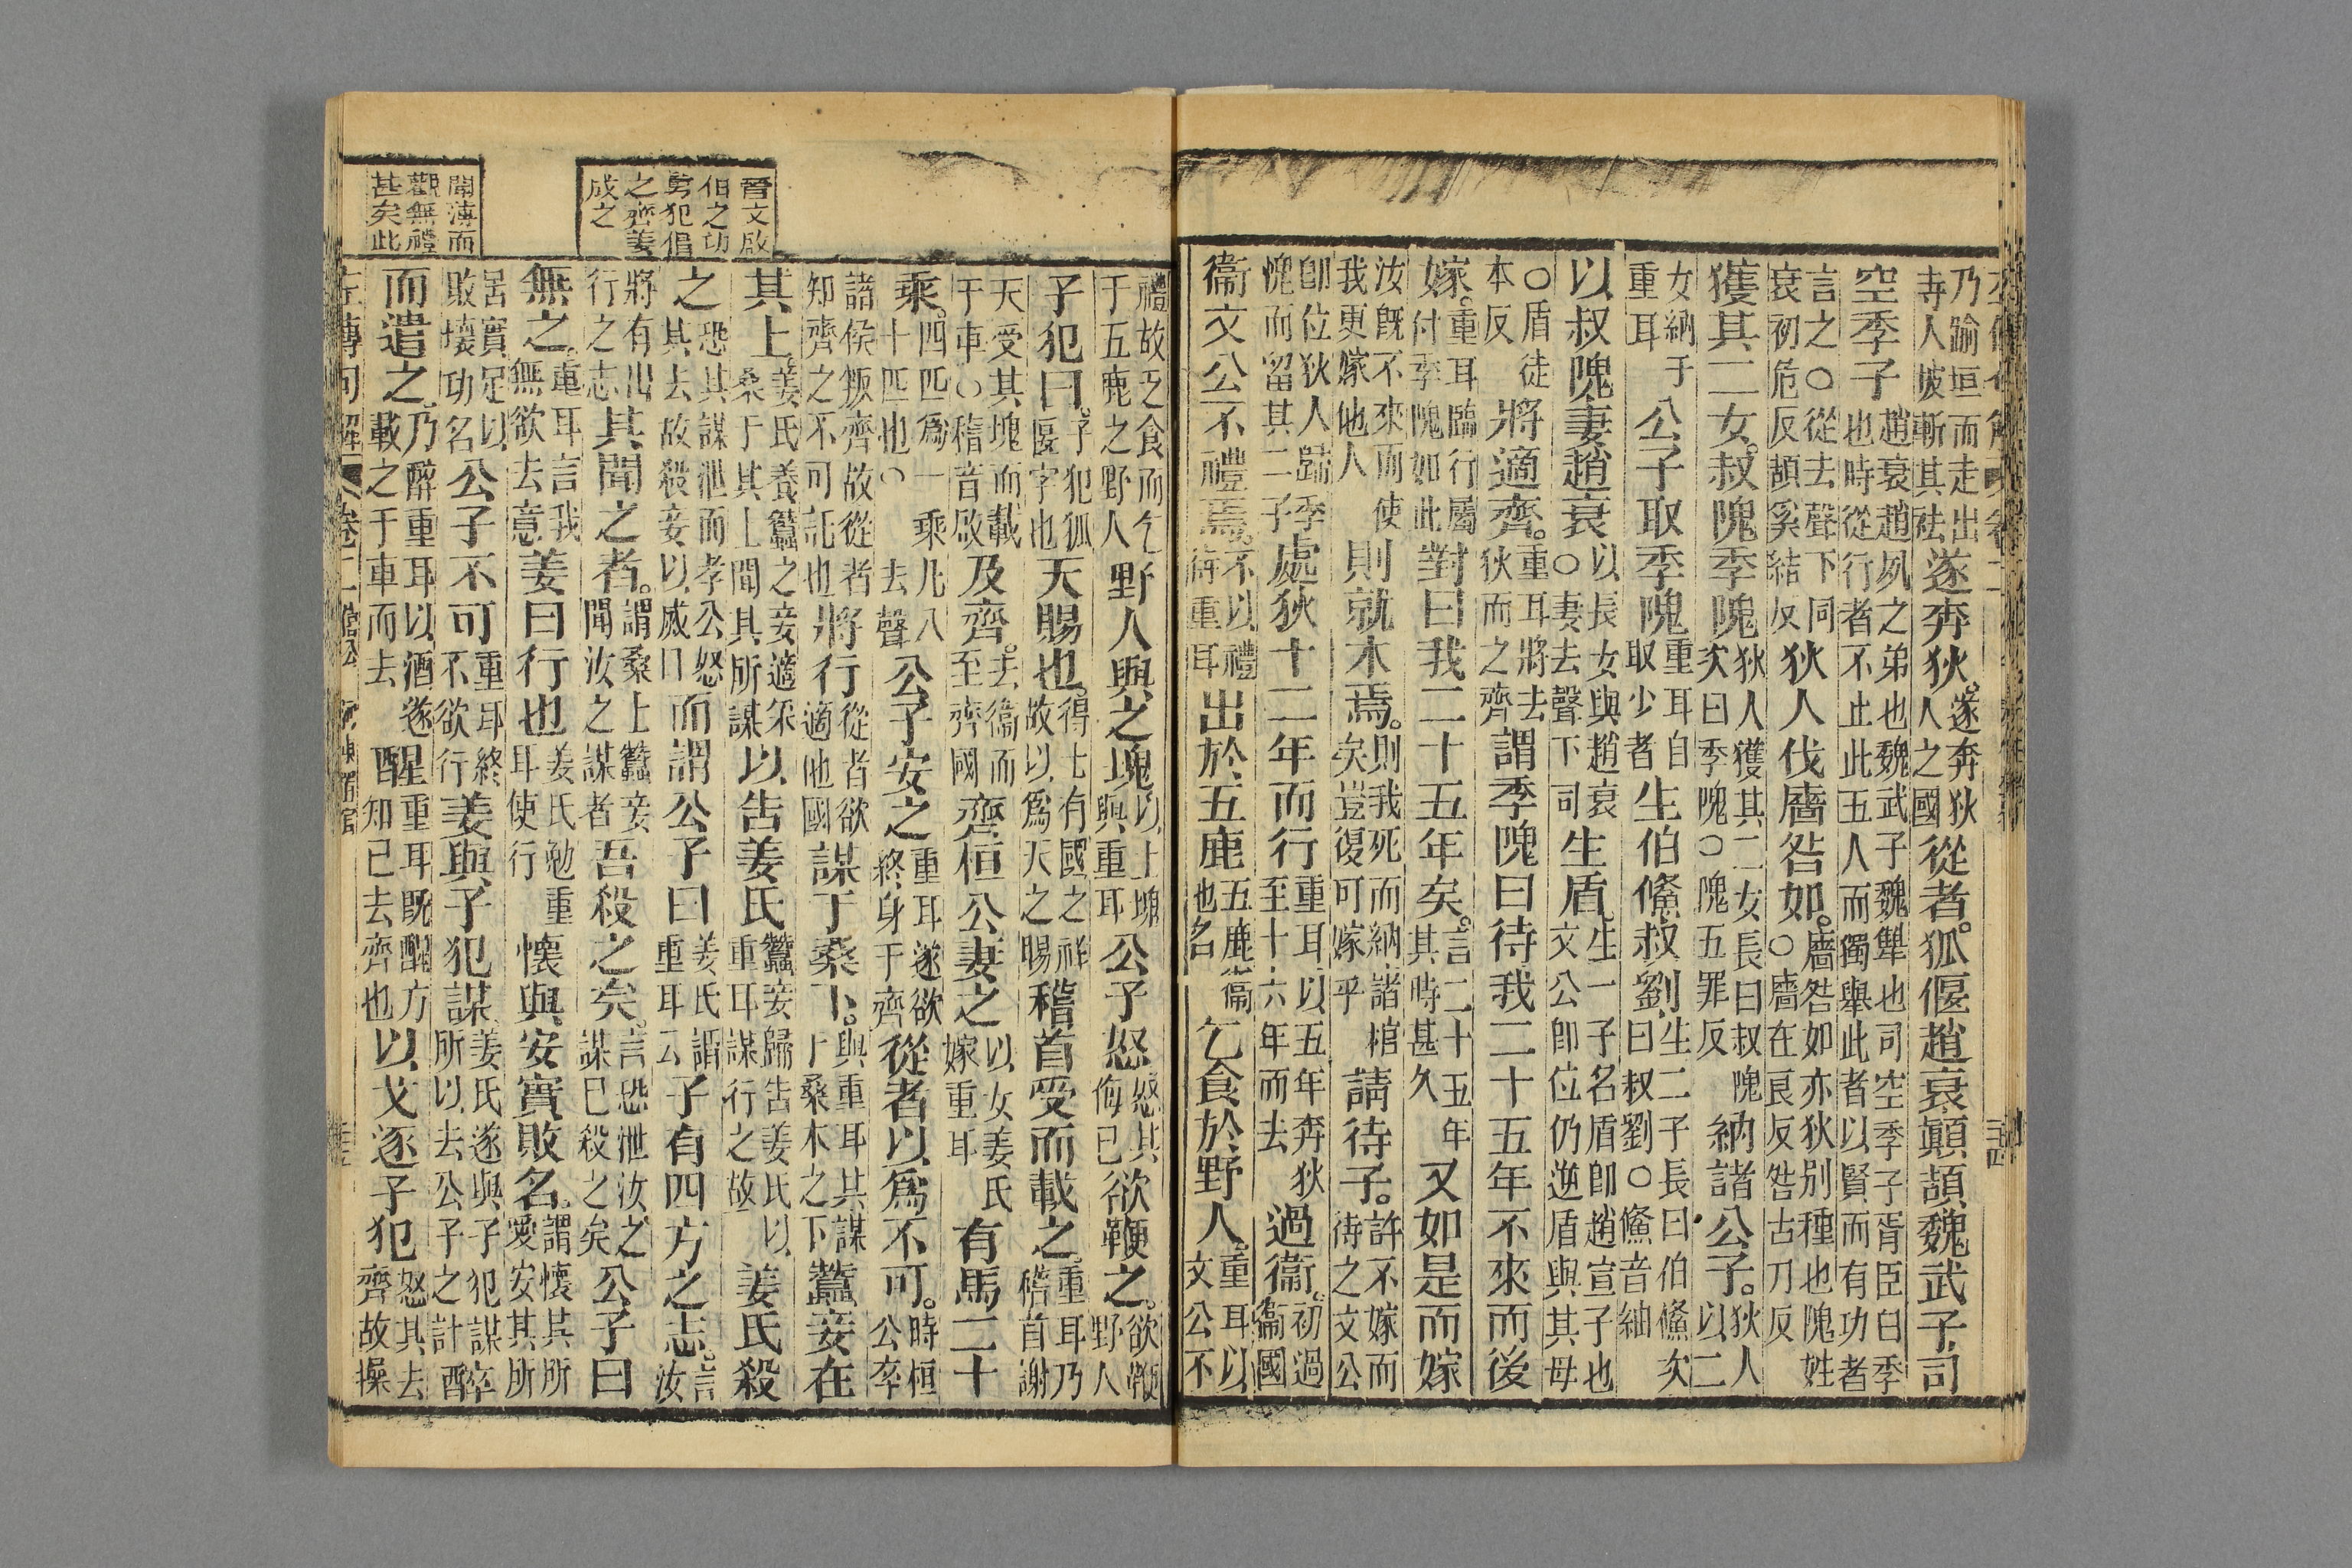 乃踰垣而走出寺人披斬其袪遂奔狄遂奔狄人之國從者。狐偃趙衰顛頡魏武子司
空季子趙衰趙夙之弟也魏武子魏犨也司空季子胥臣臼季也時從行者不止此五人而獨舉此者以賢而有功者
言之○從去聲下同衰初危反頡奚結反狄人伐廧咎如。廧咎如亦狄别種也隗姓○廧在良反咎古刀反
獲其二女。叔隗季隗狄人獲其二女長曰叔隗次曰季隗○隗五罪反納諸公子。狄人以二
女納于重耳公子取季隗重耳自取少者生伯鯈叔劉生二子長曰伯鯈次曰叔劉○鯈音紬
以叔隗妻趙衰以長女與趙衰○妻去聲下司生盾生一子名盾即趙宣子也文公即位仍逆盾與其母
○盾徒本反將適齊。重耳將去狄而之齊謂季隗曰待我二十五年不來而後
嫁。重耳臨行屬付季隗如此對曰我二十五年矣。言二十五年其時甚久又如是而嫁
汝既不來而使我更嫁他人則就木焉。則我死而納諸棺矣豈復可嫁乎請待子。許不嫁而待之文公
即位狄人歸季隗而留其二子處狄十二年而行重耳以五年奔狄至十六年而去過衞。初過衞國
衞文公不禮焉。不以禮待重耳出於五鹿五鹿衞也名乞食於野人重耳以文公不
晉文啟
伯之功
舅犯倡
之齊姜
成之
聞薄而
觀無禮
甚矣此
禮故乏食而乞于五鹿之野人野人與之塊以土塊與重耳公子怒怒其侮已欲鞭之。欲鞭野人
子犯曰。子犯狐偃字也天賜也。得土有國之祥故以爲天之賜稽首受而載之。重耳乃稽首謝
天受其塊而載于車○稽音啟及齊。去衞而至齊國齊桓公妻之以女姜氏嫁重耳有馬二十
乘。四匹爲一乘凡八十匹也○去聲公子安之重耳遂欲終身于齊從者以爲不可。時桓公卒
諸侯叛齊故從者知齊之不可託也將行從者欲適他國謀于桑下。與重耳其謀于桑木之下蠶妾在
其上姜氏養蠶之妾適采桑于其上聞其所謀以告姜氏蠶妾歸告姜氏以重耳謀行之故姜氏殺
之恐其謀泄而孝公怒其去故殺妾以滅口而謂公子曰姜氏謂重耳云子有四方之志。言汝
將有出行之志其聞之者。謂桑上蠶妾聞汝之謀者吾殺之矣。言恐泄汝之謀已殺之矣公子曰
無之。重耳言我無欲去意姜曰行也姜氏勉重耳使行懷與安實敗名。謂懷其所愛安其所
居實足以敗壞功名公子不可重耳終不欲行姜與子犯謀姜氏遂與子犯謀卒所以去公子之計醉
而遣之乃醉重耳以酒遂載之于車而去醒重耳既醒方知已去齊也以戈逐子犯怒其去齊故操